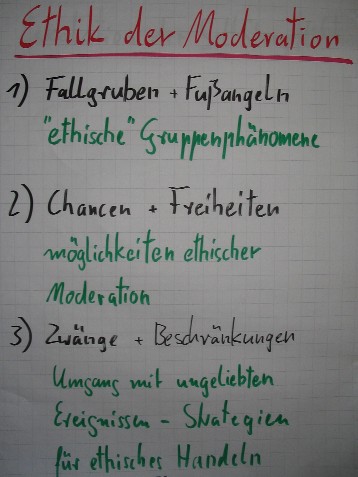 Ethik der Moderation
1) Fallgruben + Fußangeln
"ethische" Gruppenphänomene
2) Chancen + Freiheiten
möglichkeiten ethischer
Moderation
3) Zwänge + Beschränkungen
Umgang mit ungeliebten
Ereignissen - Strategien
für ethisches Handeln